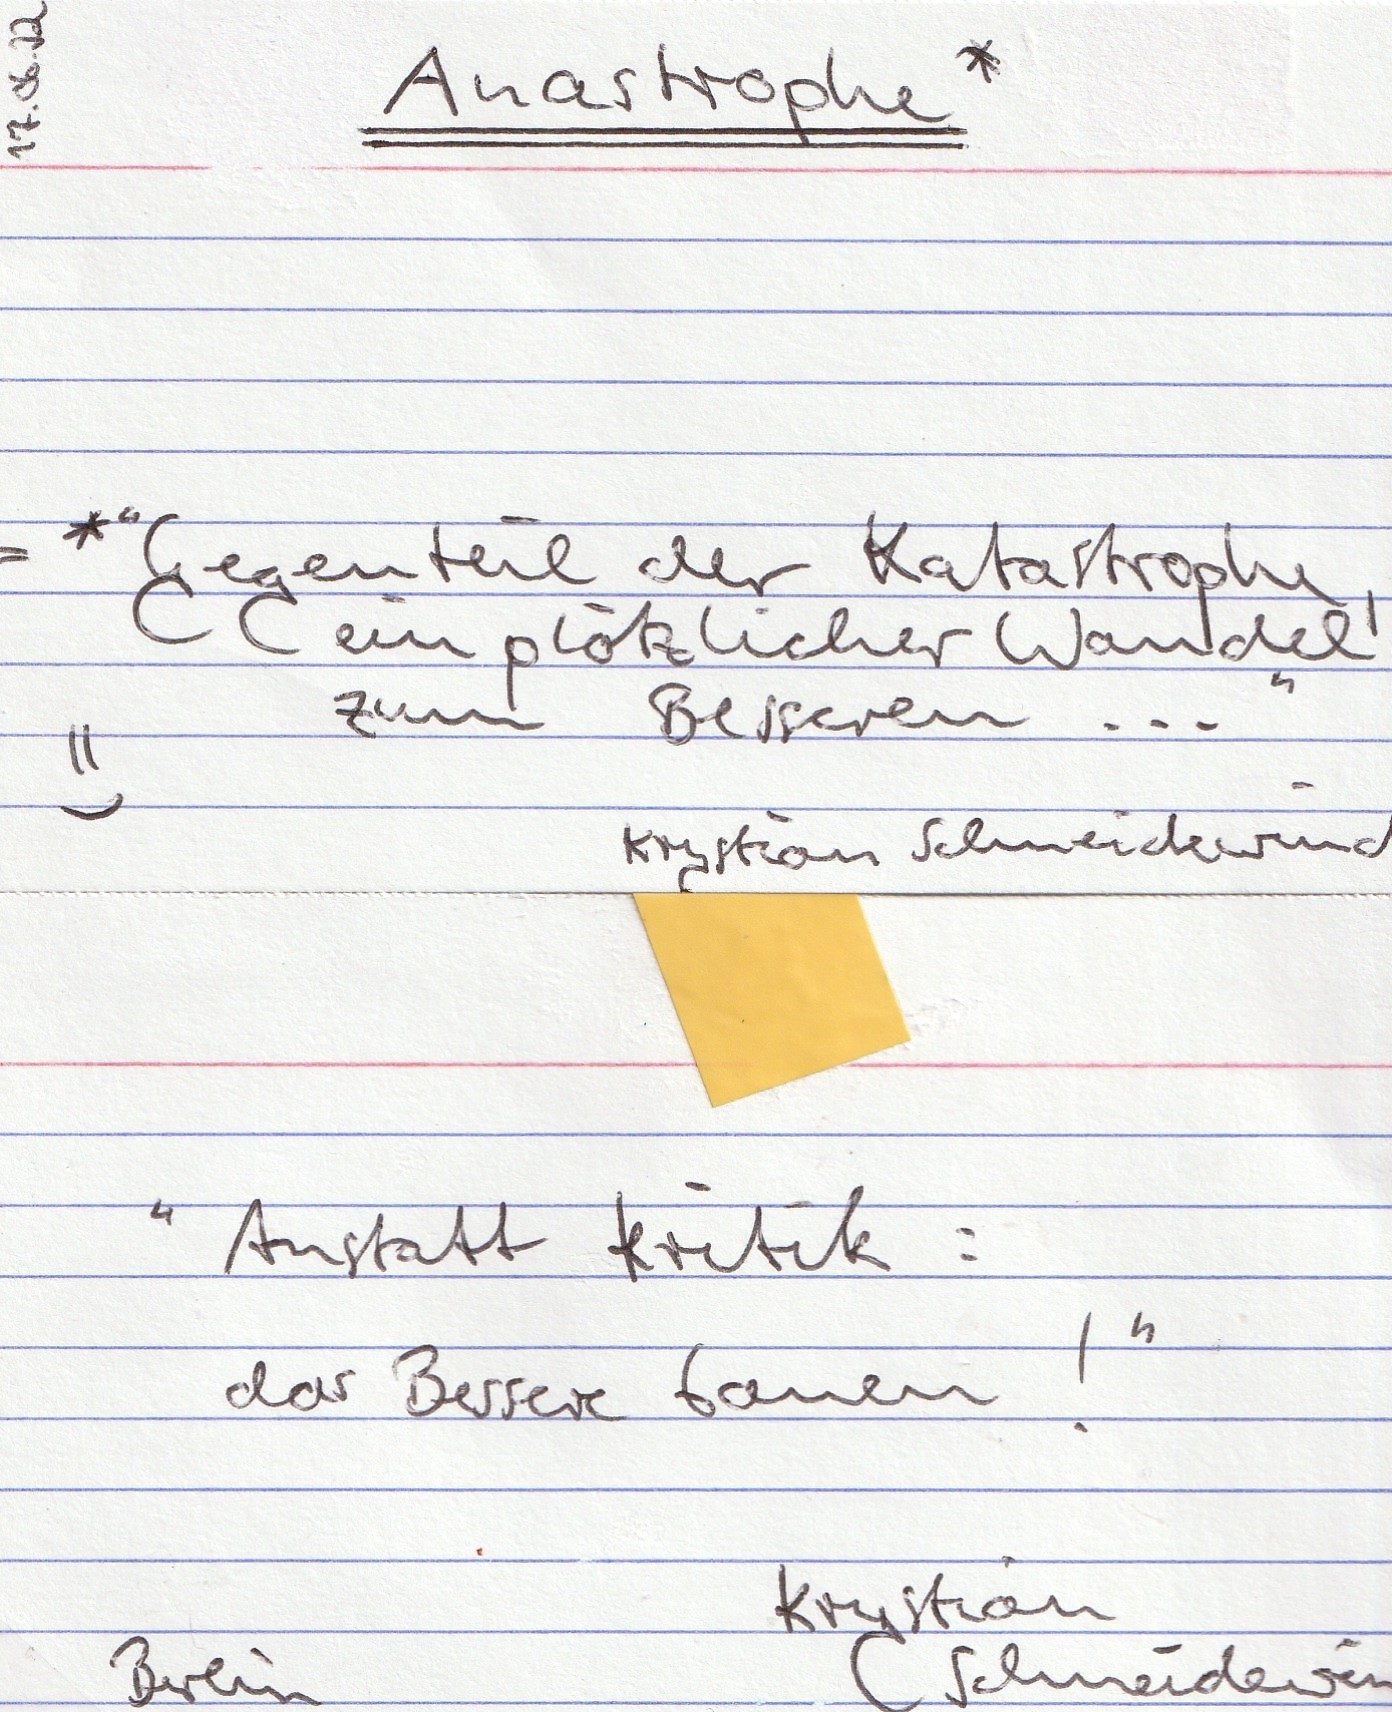 17.06.22
Anastrophe*
= *"Gegenteil der Katastrophe,
(ein plötzlicher Wandel
zum Besseren ..."
=)
Krystian Schneidewind
"Anstatt Kritik:
das Bessere bauen!"
Krystian
Berlin (Schneidewin